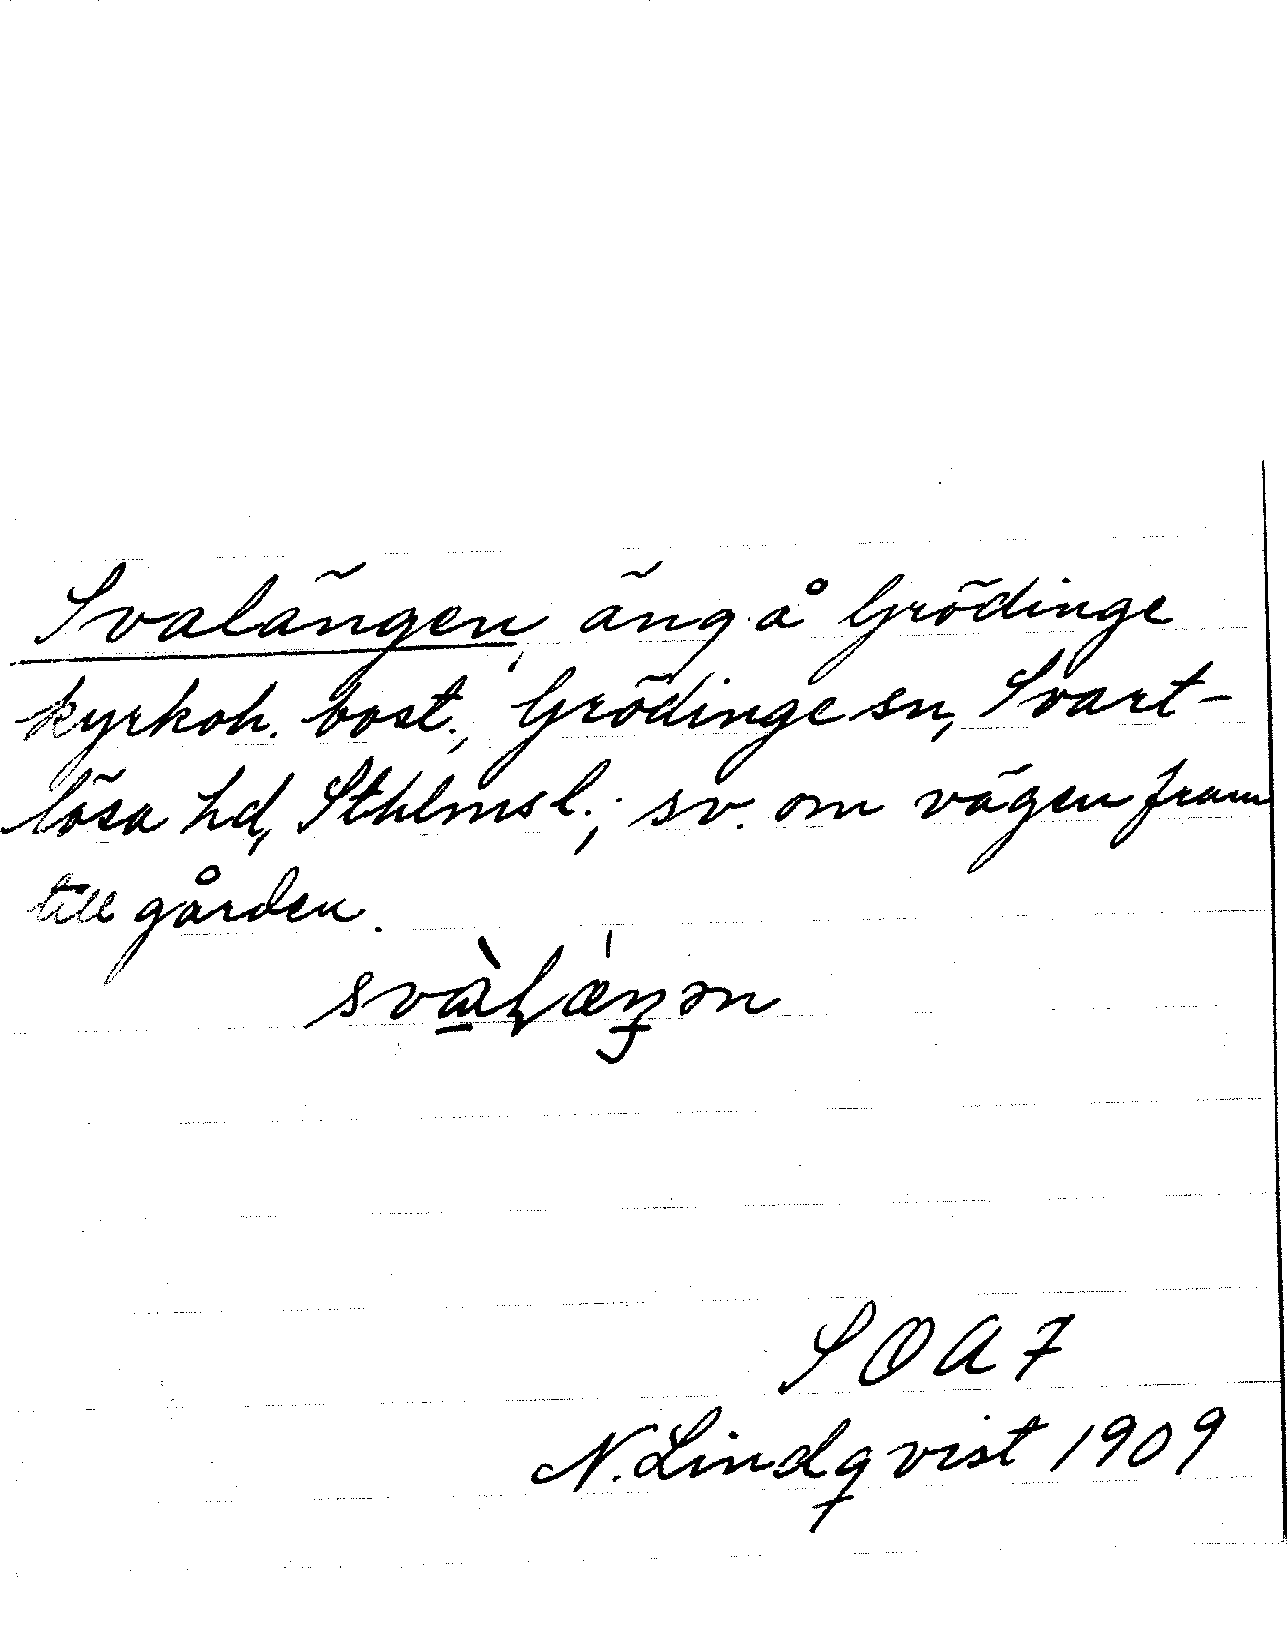 Svalängen, äng å Grödinge
kyrkoh. bost., Grödinge sn, Svart-
lösa hd, Sthlmsl.; sv. om vägen fram
till gården.
SOA 7
N. Lindqvist 1909